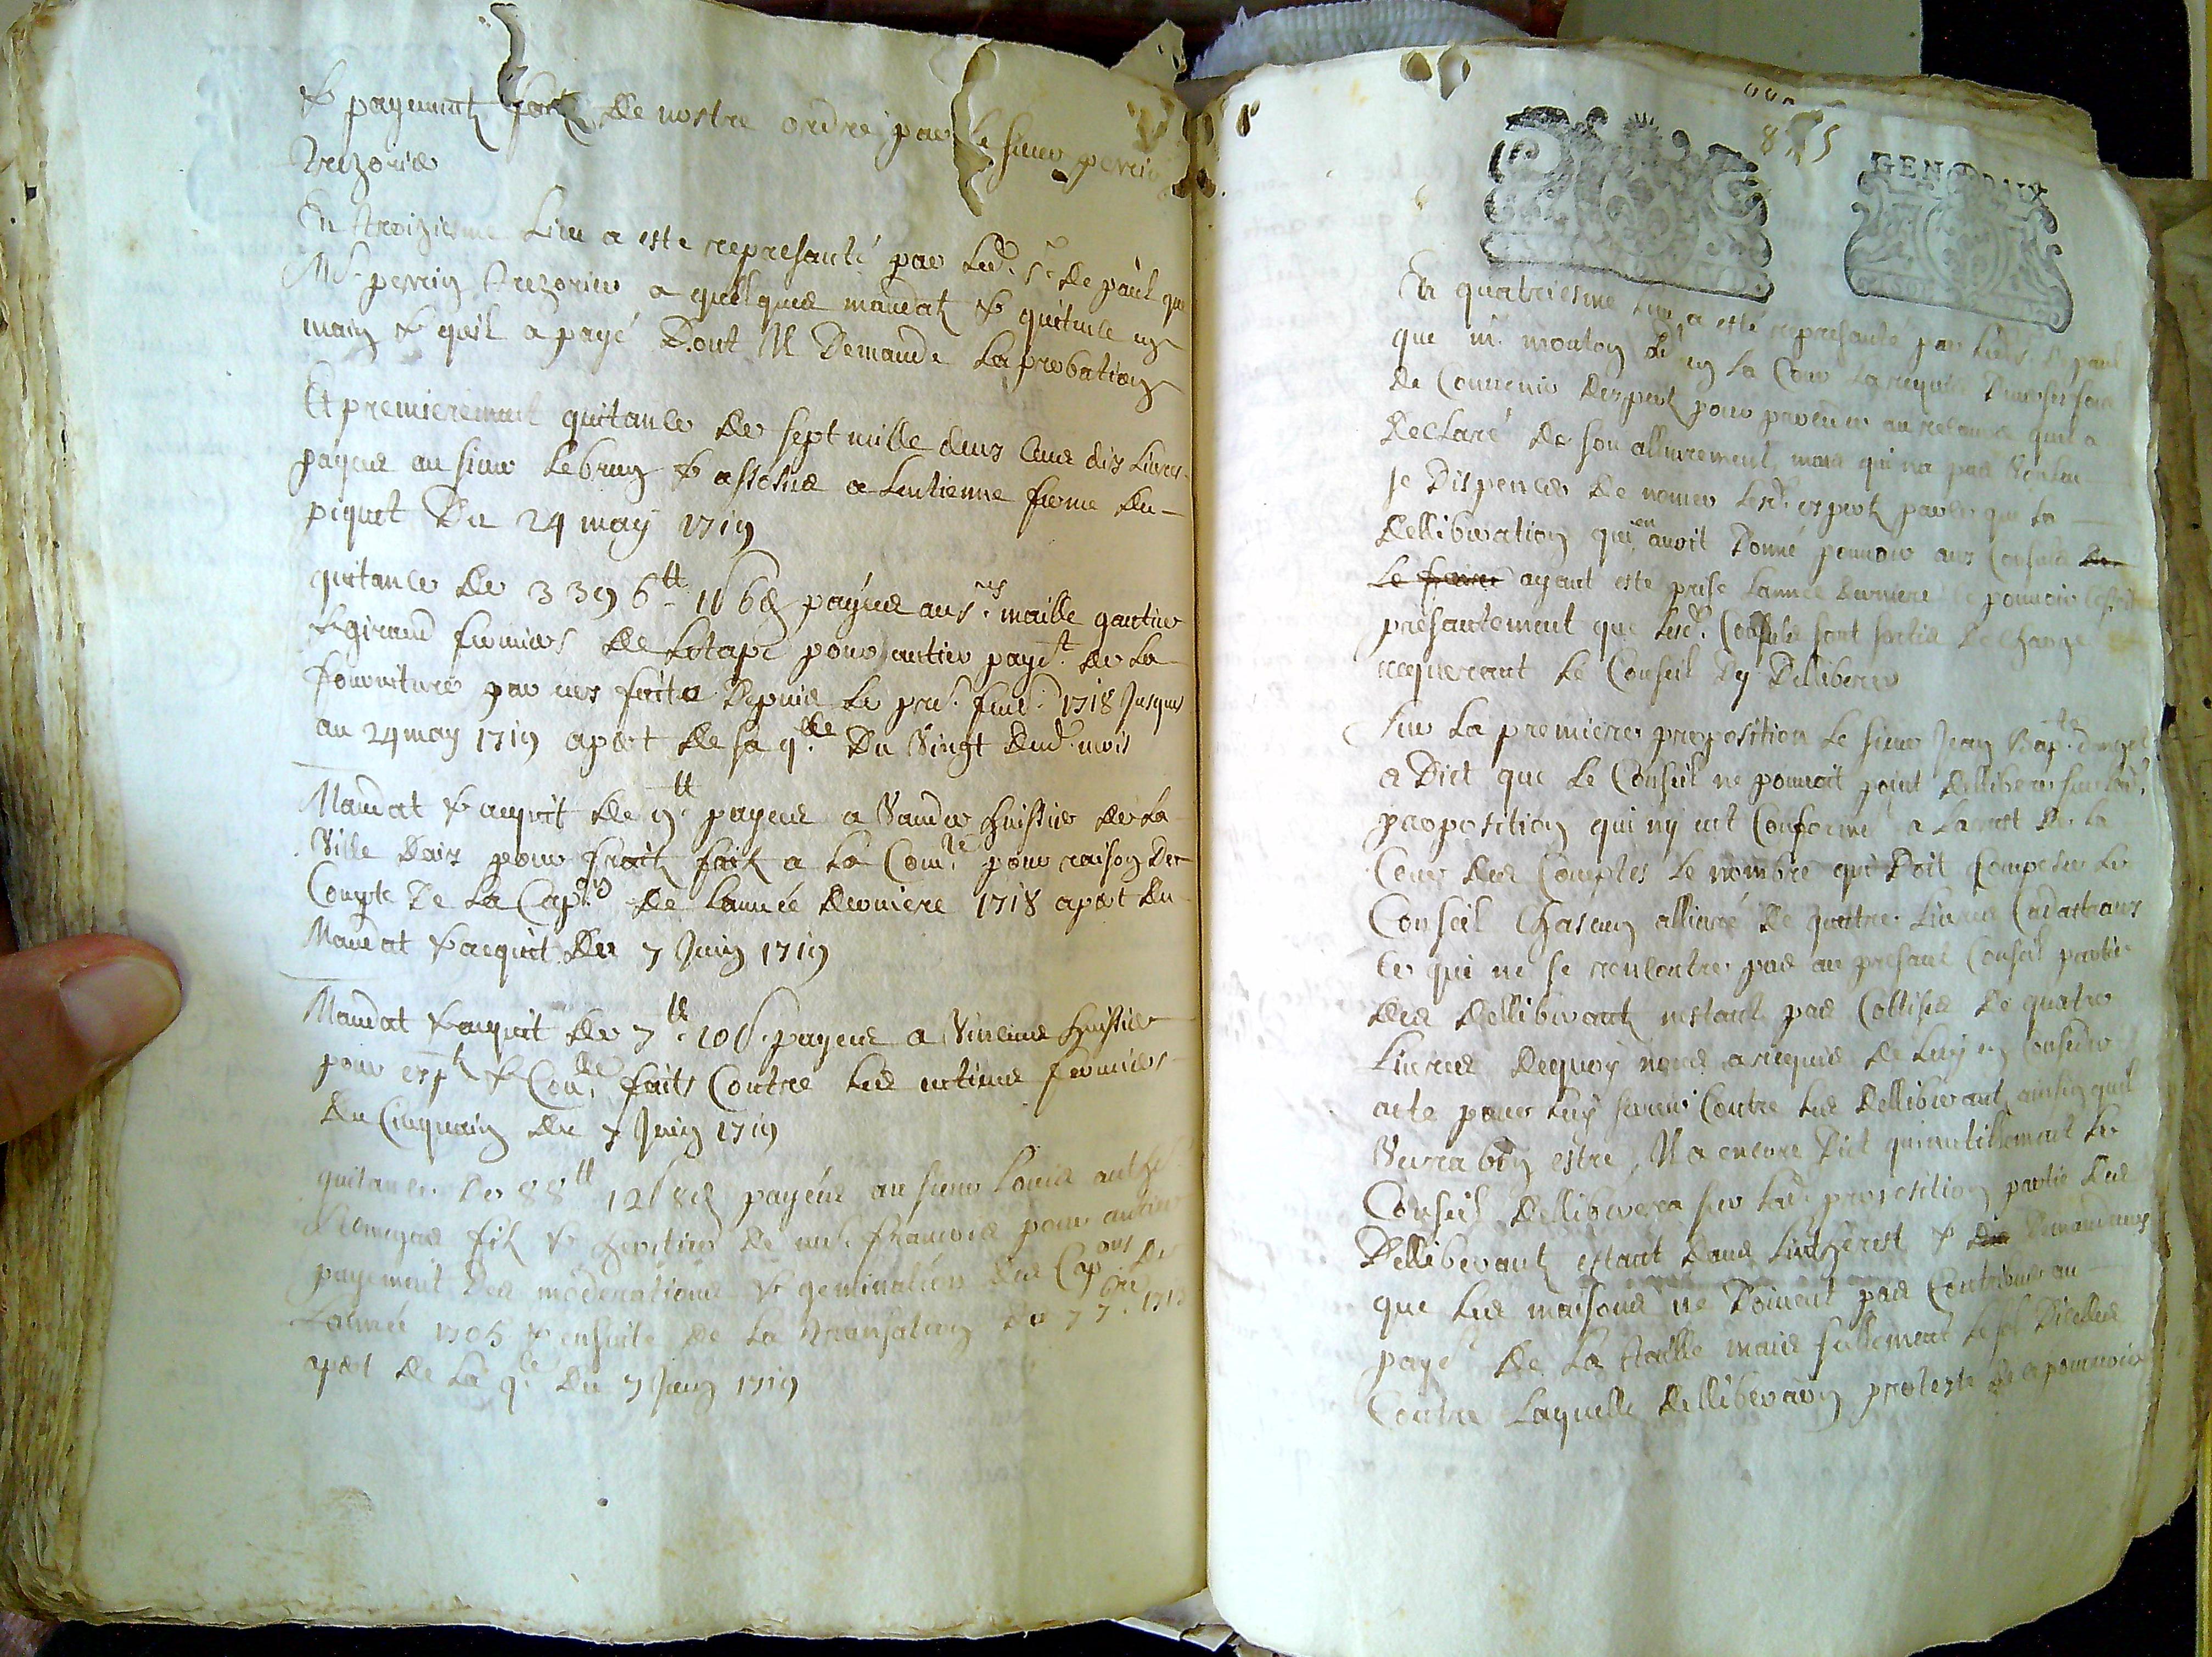 & payements faits de nostre ordre par le sieur perrin
trezorier
En troiziesme lieu a esté represanté par led. sr. de paul que
Mr. perrin trezorier a quelques mandats & quitance en
main & qu'il a payé dont Il demande laprobation
Et premierement quitance de sept mille deux cens dix livres
payeus au sieur lebrun & assosiés a lentienne ferme du
piquet du 24 may 1719
quitance de 3396tt 1s 6d payeus aux srs. maille gautier
& giraud fermiers de letape pour entier payet. de la
fourniture par eux faite depuis le pre. 1718 jusques
au 24 may 1719 apert de sa q.ce du vingt dud. mois
Mandat & aquit de 9tt payeus a huissier de la
Ville daix pour fraits faits a la Com.té pour raison de
Compte de la Cap.on de lannée derniere 1718 apert du
Mandat & acquit du 7 Juin 1719
Mandat & aquit de 7tt 10s. payeus a Vincens huissier
pour expts & Con.de faits Contre les entiens fermiers
du Cinquain du 7 Juin 1719
quitance de 88tt 12s 8d payeus au sieur Louis
fils & heritier de me. francois pour entier
payement des moderations & geminations des Cap.ons de
lannée 1705 & ensuite de la transation du 7 7bre. 171
apert de la q.ce du 7 Juin 1719
GEN
En quatriesme lieu a esté represanté par led. sr. de paul
que mr. mouton en la Cour la requis diverses fois
de Convenir despert pour proceder au qu'il a
declaré de son allivrement, mais qui na pas voulu
se dispenser de nomer lesd. experts parce que la
delliberation qui en avoit donné pouvoir aux Consuls de
le ferme ayant esté prise lannée derniere le pouvoir
presantement que lesd. Consuls sont sortis de charge
requerant le Conseil dy delliberer
Sur la premiere proposition le sieur Jean Bap.te
a dict que le Conseil ne pouvoit point delliberer sur lad.
proposition qui ny ait Conforme a larrest de la
Cour des Comptes le nombre qui doit composer le
Conseil chascun allivré de quatre livres Cadastraux
ce qui ne se rencontre pas au presant Conseil partie
des dellibrants nestant pas Cottisés de quatre
livres dequoy nous a requis de luy en conseder
acte pour luy servir Contre les dellibrants ainsin quil
verra bon estre, Il a encore dict le
Conseil dellibrera sur lad. proposition partie des
dellibrants estant dans lintherest & demandeurs
que les maisons ne doivent pas Contribuer au
paye.t de la taille mais sullement le sol dicelles
Contre laquelle delliberation proteste de se pourvoir